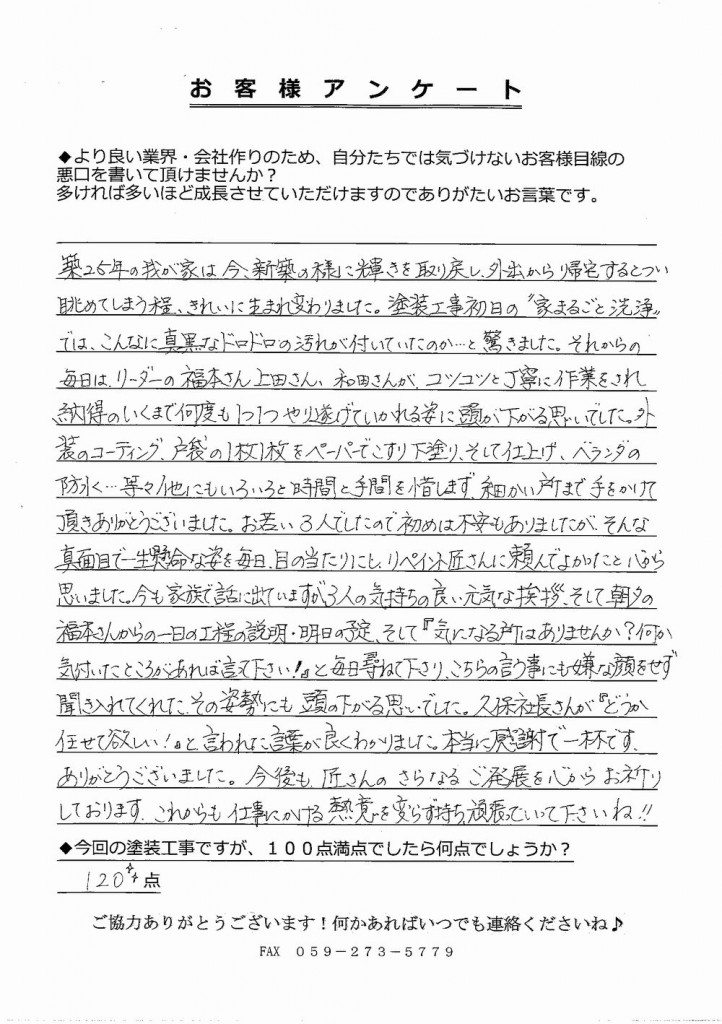 お客様アンケート
◆より良い業界・会社作りのため、自分たちでは気づけないお客様目線の
悪口を書いて頂けませんか？
多ければ多いほど成長させていただけますのでありがたいお言葉です。
築25年の我が家は今、新築の様に輝きを取り戻し、外出から帰宅するとつい
眺めてしまう程、きれいに生まれ変わりました。塗装工事初日の〝家まるごと洗浄〟
では、こんなに真黒なドロドロの汚れが付いていたのか…と驚きました。それからの
毎日は、リーダーの福本さん上田さん、和田さんが、コツコツと丁寧に作業をされ
納得のいくまで何度も1つ1つやり遂げていかれる姿に頭が下がる思いでした。外
装のコーティング、戸袋の1枚1枚をペーパーでこすり下塗り、そして仕上げ、ベランダの
防水…等々他にもいろいろと時間と手間を惜しまず、細かい所まで手をかけて
頂きありがとうございました。お若い3人でしたので初めは不安もありましたが、そんな
真面目で一生懸命な姿を毎日、目の当たりにし、リペイント匠さんに頼んでよかったと心から
思いました。今も家族で話に出ていますが3人の気持ちの良い元気な挨拶、そして朝夕の
福本さんからの一日の工程の説明・明日の予定、そして『気になる所はありませんか？何か
気付いたところがあれば言って下さい！』と毎日尋ねて下さり、こちらの言う事にも嫌な顔をせず
聞き入れてくれた、その姿勢にも頭の下がる思いでした。久保社長さんが『どうか
任せて欲しい！』と言われた言葉が良くわかりました。本当に感謝で一杯です、
ありがとうございました。今後も、匠さんのさらなるご発展を心からお祈り
しております、これからも仕事にかける熱意を変らず持ち、頑張っていって下さいね!!
◆今回の塗装工事ですが、１００点満点でしたら何点でしょうか？
120点
ご協力ありがとうございます！何かあればいつでも連絡くださいね♪
FAX 059－273－5779